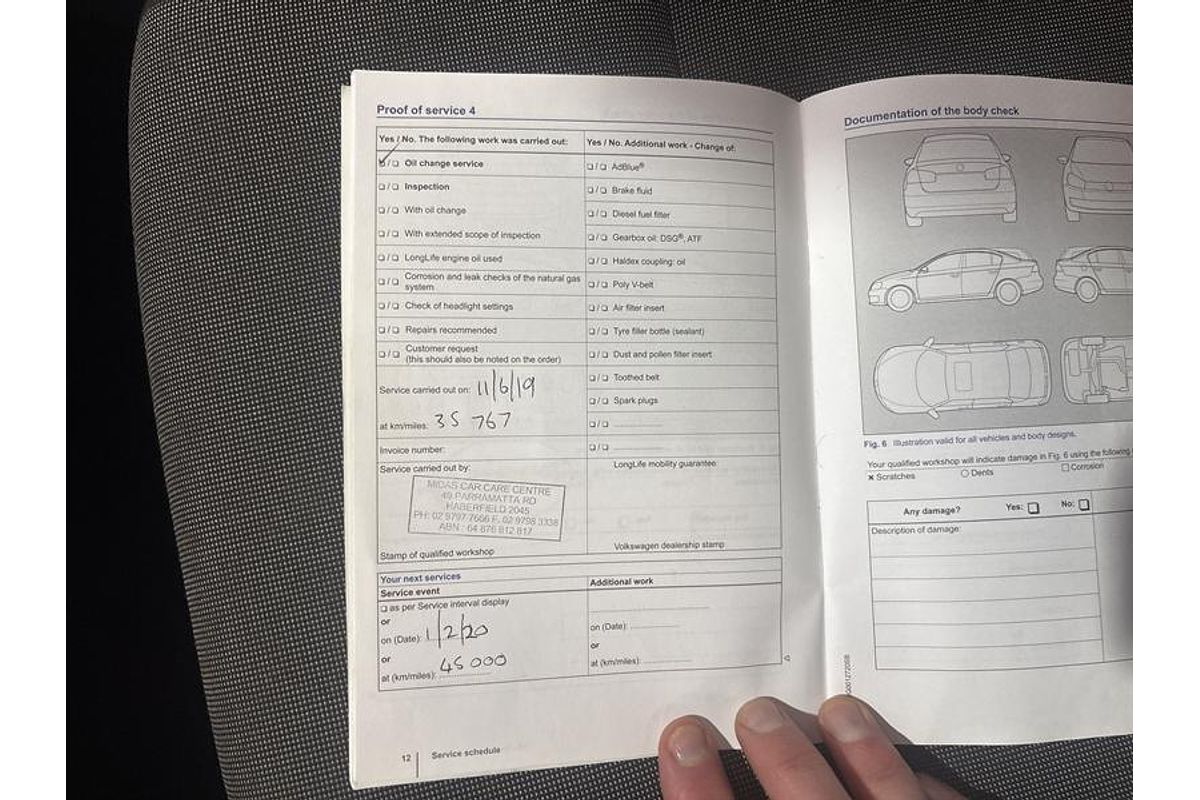 Proof of service 4
Yes / No. The following work was carried out:
❏/❏ Oil change service
❏/❏ Inspection
❏/❏ With oil change
❏/❏ With extended scope of inspection
❏/❏ LongLife engine oil used
❏/❏ Corrosion and leak checks of the natural gas
system
❏/❏ Check of headlight settings
❏/❏ Repairs recommended
❏/❏ Customer request
(this should also be noted on the order)
Service carried out on: 11/6/19
at km/miles: 35 767
Invoice number:
Service carried out by:
MIDAS CAR CARE CENTRE
49 PARRAMATTA RD
HABERFIELD 2045
PH: 02 9797 7606 F. 02 9798 3338
ABN : 64 876 812 817
Stamp of qualified workshop
Yes / No. Additional work - Change of:
❏/❏ AdBlue®
❏/❏ Brake fluid
❏/❏ Diesel fuel filter
❏/❏ Gearbox oil: DSG®, ATF
❏/❏ Haldex coupling: oil
❏/❏ Poly V-belt
❏/❏ Air filter insert
❏/❏ Tyre filler bottle (sealant)
❏/❏ Dust and pollen filter insert
❏/❏ Toothed belt
❏/❏ Spark plugs
❏/❏
❏/❏
LongLife mobility guarantee
Volkswagen dealership stamp
Your next services
Service event
❏ as per Service interval display
or
on (Date): 1/2/20
or
at (km/miles): 45 000
Additional work
on (Date):
or
at (km/miles):
12 Service schedule
Documentation of the body check
Fig. 6 Illustration valid for all vehicles and body designs.
Your qualified workshop will indicate damage in Fig. 6 using the following
× Scratches ○ Dents □ Corrosion
Any damage? Yes: ❏ No: ❏
Description of damage: